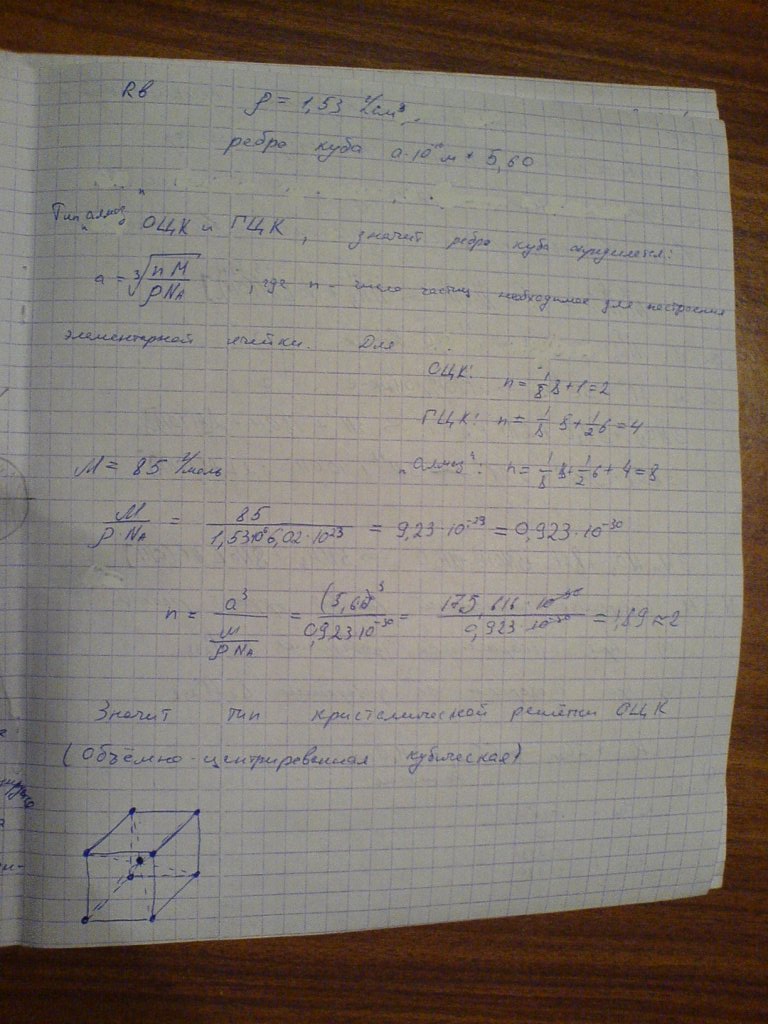 Rb ρ = 1,53 г/см³,
ребро куба a·10⁻¹⁰м * 5,60
Тип "алмаз", ОЦК и ГЦК, значит ребро куба определяется:
a = ∛(nM/ρNA), где n - число частиц необходимое для построения
элементарной ячейки. Для
ОЦК: n = 1/8 8+1=2
ГЦК: n = 1/8 8+1/2 6=4
M = 85 г/моль "алмаз": n = 1/8 8+1/2 6+4=8
M/ρ·NA = 85/1,53·10⁶·6,02·10²³ = 9,23·10⁻²³ = 0,923·10⁻³⁰
n = a³/(M/ρ·NA) = (5,60)³/0,923·10⁻³⁰ = 175,616·10⁻³⁰/0,923·10⁻³⁰ = 1,89≈2
Значит тип кристалической решётки ОЦК
(Объёмно-центрированная кубическая)